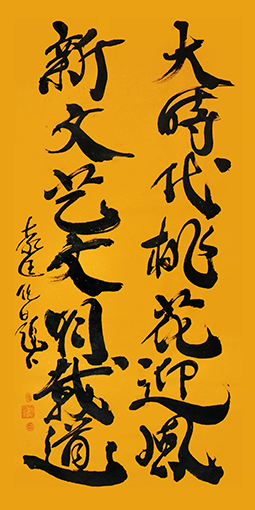 大時代桃花迎風
新文艺文明載道